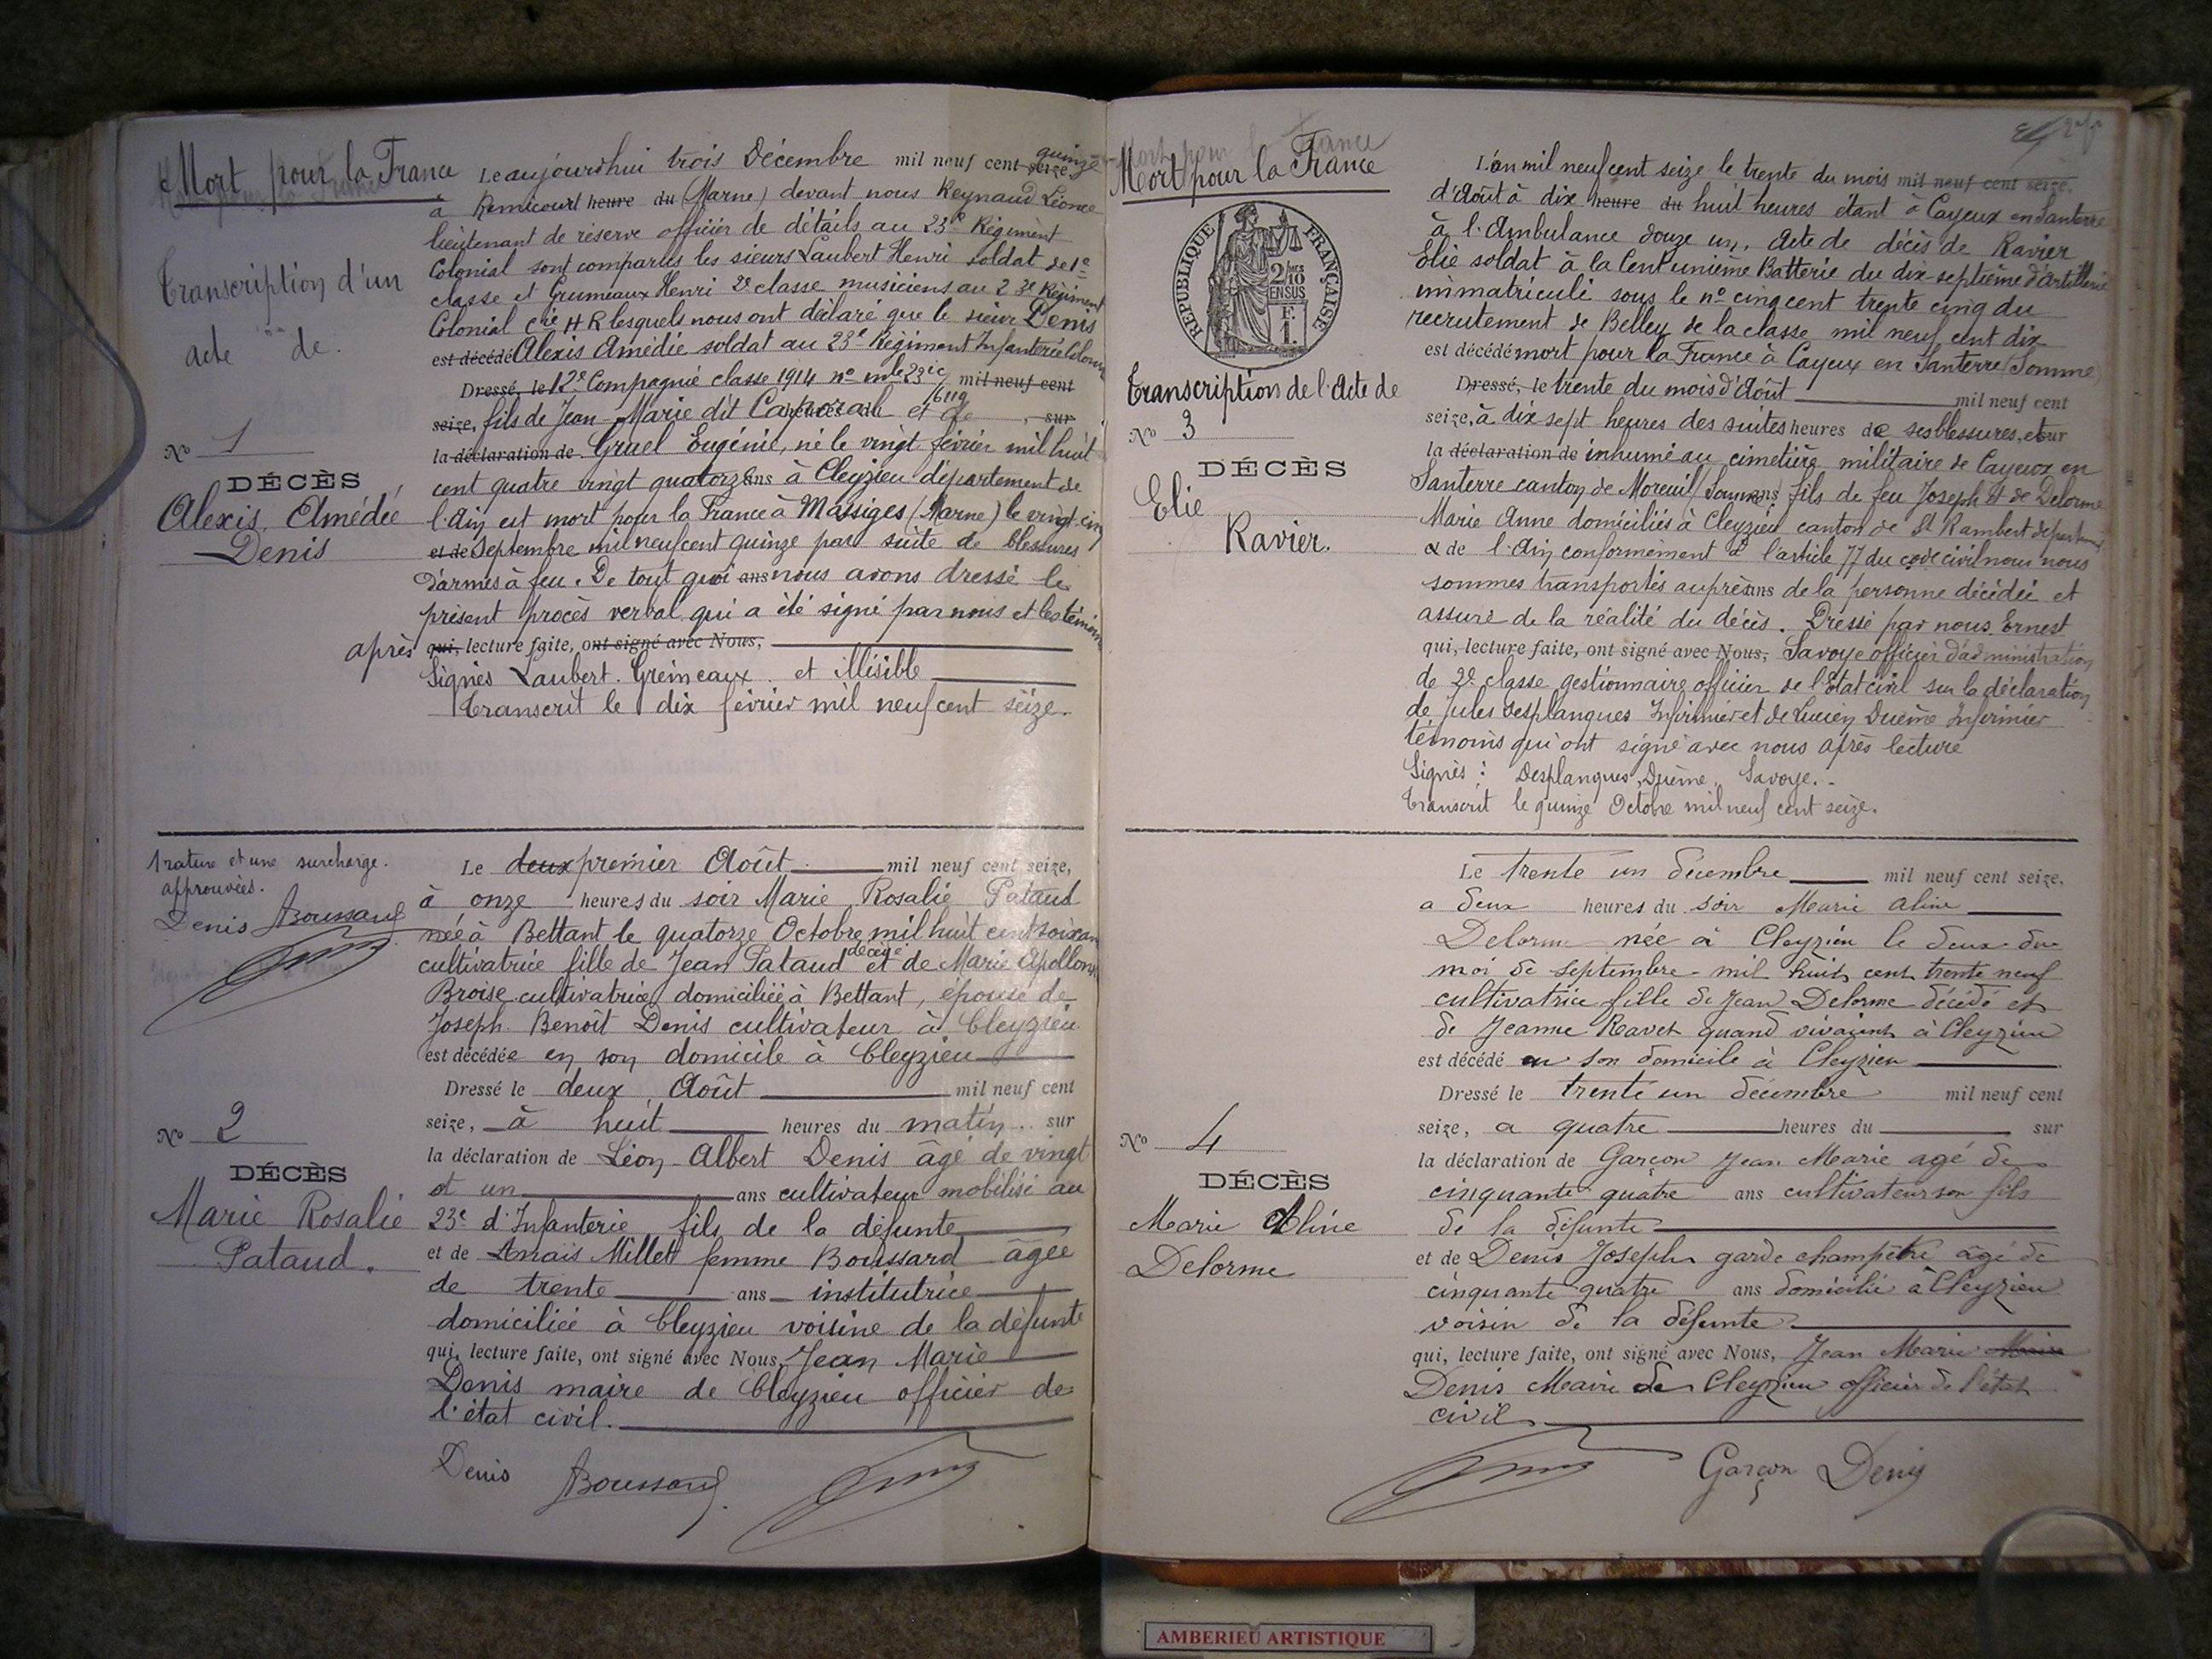 Mort pour la France
Transcription d'un
acte de.
Nº 1
DÉCÈS
Alexis Amédée
Denis
Le aujourd'hui trois Décembre mil neuf cent seize quinze
à Remicourt heure du (Marne) devant nous Reynaud Léonce
lieutenant de réserve officier de détails au 23e Régiment
Colonial sont comparus les sieurs Laubert Henri soldat de 1e
classe et Grumeaux Henri 2e classe musiciens au 23e Régiment
Colonial Cie H R lesquels nous ont déclaré que le sieur Denis
est décédé Alexis Amédée soldat au 23e Régiment Infanterie
Dressé, le 12e Compagnie classe 1914 nº mle 23ic/6119 mil neuf cent
seize, fils de Jean Marie dit Caporal et de , sur
la déclaration de Gruel Eugénie, né le vingt février mil huit
cent quatre vingt quatorze ans à Cleyzieu département de
l'Ain est mort pour la France à Massiges (Marne) le vingt-cinq
et de Septembre mil neuf cent quinze par suite de blessures
d'armes à feu. De tout quoi ans nous avons dressé le
présent procès verbal qui a été signé par nous et les témoins
après qui, lecture faite, ont signé avec Nous,
Signés Laubert. Greineaux. et illisible
Transcrit le dix février mil neuf cent seize.
1 rature et une surcharge.
approuvées.
Denis ABoussard
Nº 2
DÉCÈS
Marie Rosalie
Pataud.
Le deux premier Août mil neuf cent seize,
à onze heures du soir Marie Rosalie Pataud
née à Bettant le quatorze Octobre mil huit cent soixan
cultivatrice fille de Jean Pataud décédé et de Marie Apollonie
Broise cultivatrice domiciliée à Bettant, épouse de
Joseph Benoît Denis cultivateur à Cleyzieu
est décédée en son domicile à Cleyzieu
Dressé le deux Août mil neuf cent
seize, à huit heures du matin. sur
la déclaration de Léon Albert Denis âgé de vingt
et un ans cultivateur mobilisé au
23e d'Infanterie fils de la défunte
et de Anaïs Millett femme Boussard âgée
de trente ans institutrice
domiciliée à Cleyzieu voisine de la défunte
qui, lecture faite, ont signé avec Nous, Jean Marie
Denis maire de Cleyzieu officier de
l'état civil.
Denis ABoussard
Mort pour la France
Mort pour la France
RÉPUBLIQUE FRANÇAISE
2/10
EN SUS
F.
1.
Transcription de l'Acte de
Nº 3
DÉCÈS
Elie
Ravier.
L'an mil neuf cent seize le trente du mois mil neuf cent seize.
d'Août à dix heure du huit heures étant à Cayeux en Santerre
à l'Ambulance douze un. Acte de décès de Ravier
Elie soldat à la Cent unième Batterie du dix-septième d'Artillerie
immatriculé sous le nº cinq cent trente cinq du
recrutement de Belley de la classe mil neuf cent dix
est décédé mort pour la France à Cayeux en Santerre (Somme)
Dressé, le trente du mois d'Août mil neuf cent
seize, à dix sept heures des suites heures de ses blessures, et sur
la déclaration de inhumé au cimetière militaire de Cayeux en
Santerre canton de Moreuil (Somme) fils de feu Joseph et de Delorme
Marie Anne domiciliés à Cleyzieu canton de St Rambert département
de l'Ain conformément à l'article 77 du code civil nous nous
sommes transportés auprès ans de la personne décédée et
assuré de la réalité du décès. Dressé par nous Ernest
qui, lecture faite, ont signé avec Nous, Savoye officier d'administration
de 2e classe gestionnaire officier de l'Etat civil sur la déclaration
de Jules Desplanques Infirmier et de Lucien Duême Infirmier
témoins qui ont signé avec nous après lecture
Signés : Desplanques, Duême, Savoye.
Transcrit le quinze Octobre mil neuf cent seize.
Nº 4
DÉCÈS
Marie Aline
Delorme
Le trente un décembre mil neuf cent seize.
a deux heures du soir Marie Aline
Delorme née à Cleyzieu le deux du
moi de septembre mil huit cent trente neuf
cultivatrice fille de Jean Delorme décédé et
de Jeanne Ravet quand vivaient à Cleyzieu
est décédé en son domicile à Cleyzieu
Dressé le trente un décembre mil neuf cent
seize, a quatre heures du sur
la déclaration de Garçon Jean Marie agé de
cinquante quatre ans cultivateur son fils
de la défunte
et de Denis Joseph garde champêtre âgé de
cinquante quatre ans domicilié à Cleyzieu
voisin de la défunte
qui, lecture faite, ont signé avec Nous, Jean Marie Maire
Denis Maire de Cleyzieu officier de l'état
civil
Garçon Denis
AMBERIEU ARTISTIQUE